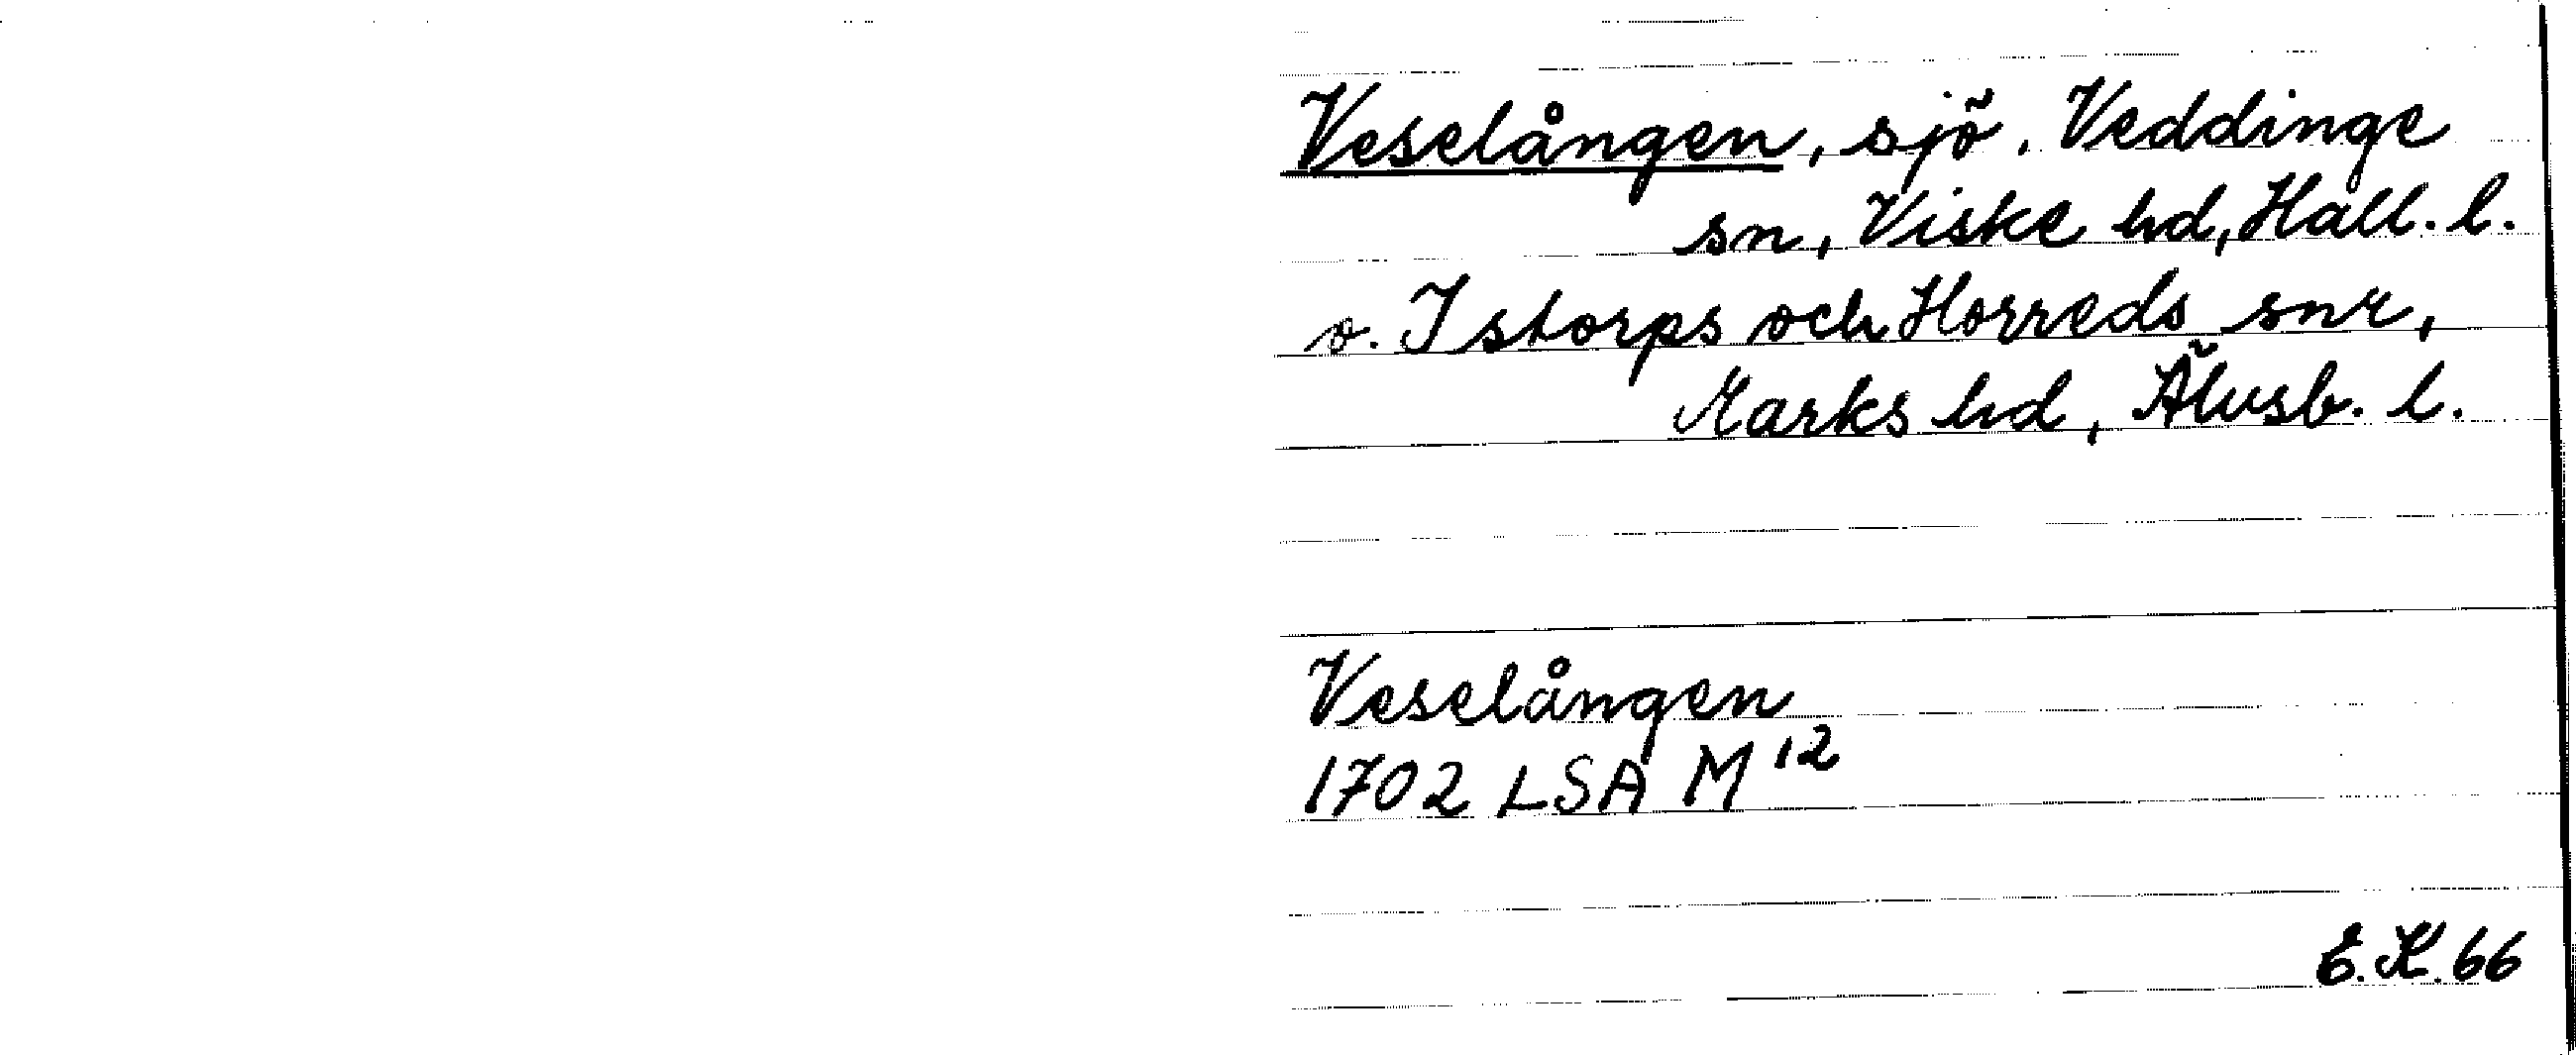 Veselången, sjö, Veddinge
sn, Viske hd, Hall. l.
o. Istorps och Horreds snr,
Marks hd, Älvsb. l.
Veselången
1702 LSA M¹²
E.K. 66